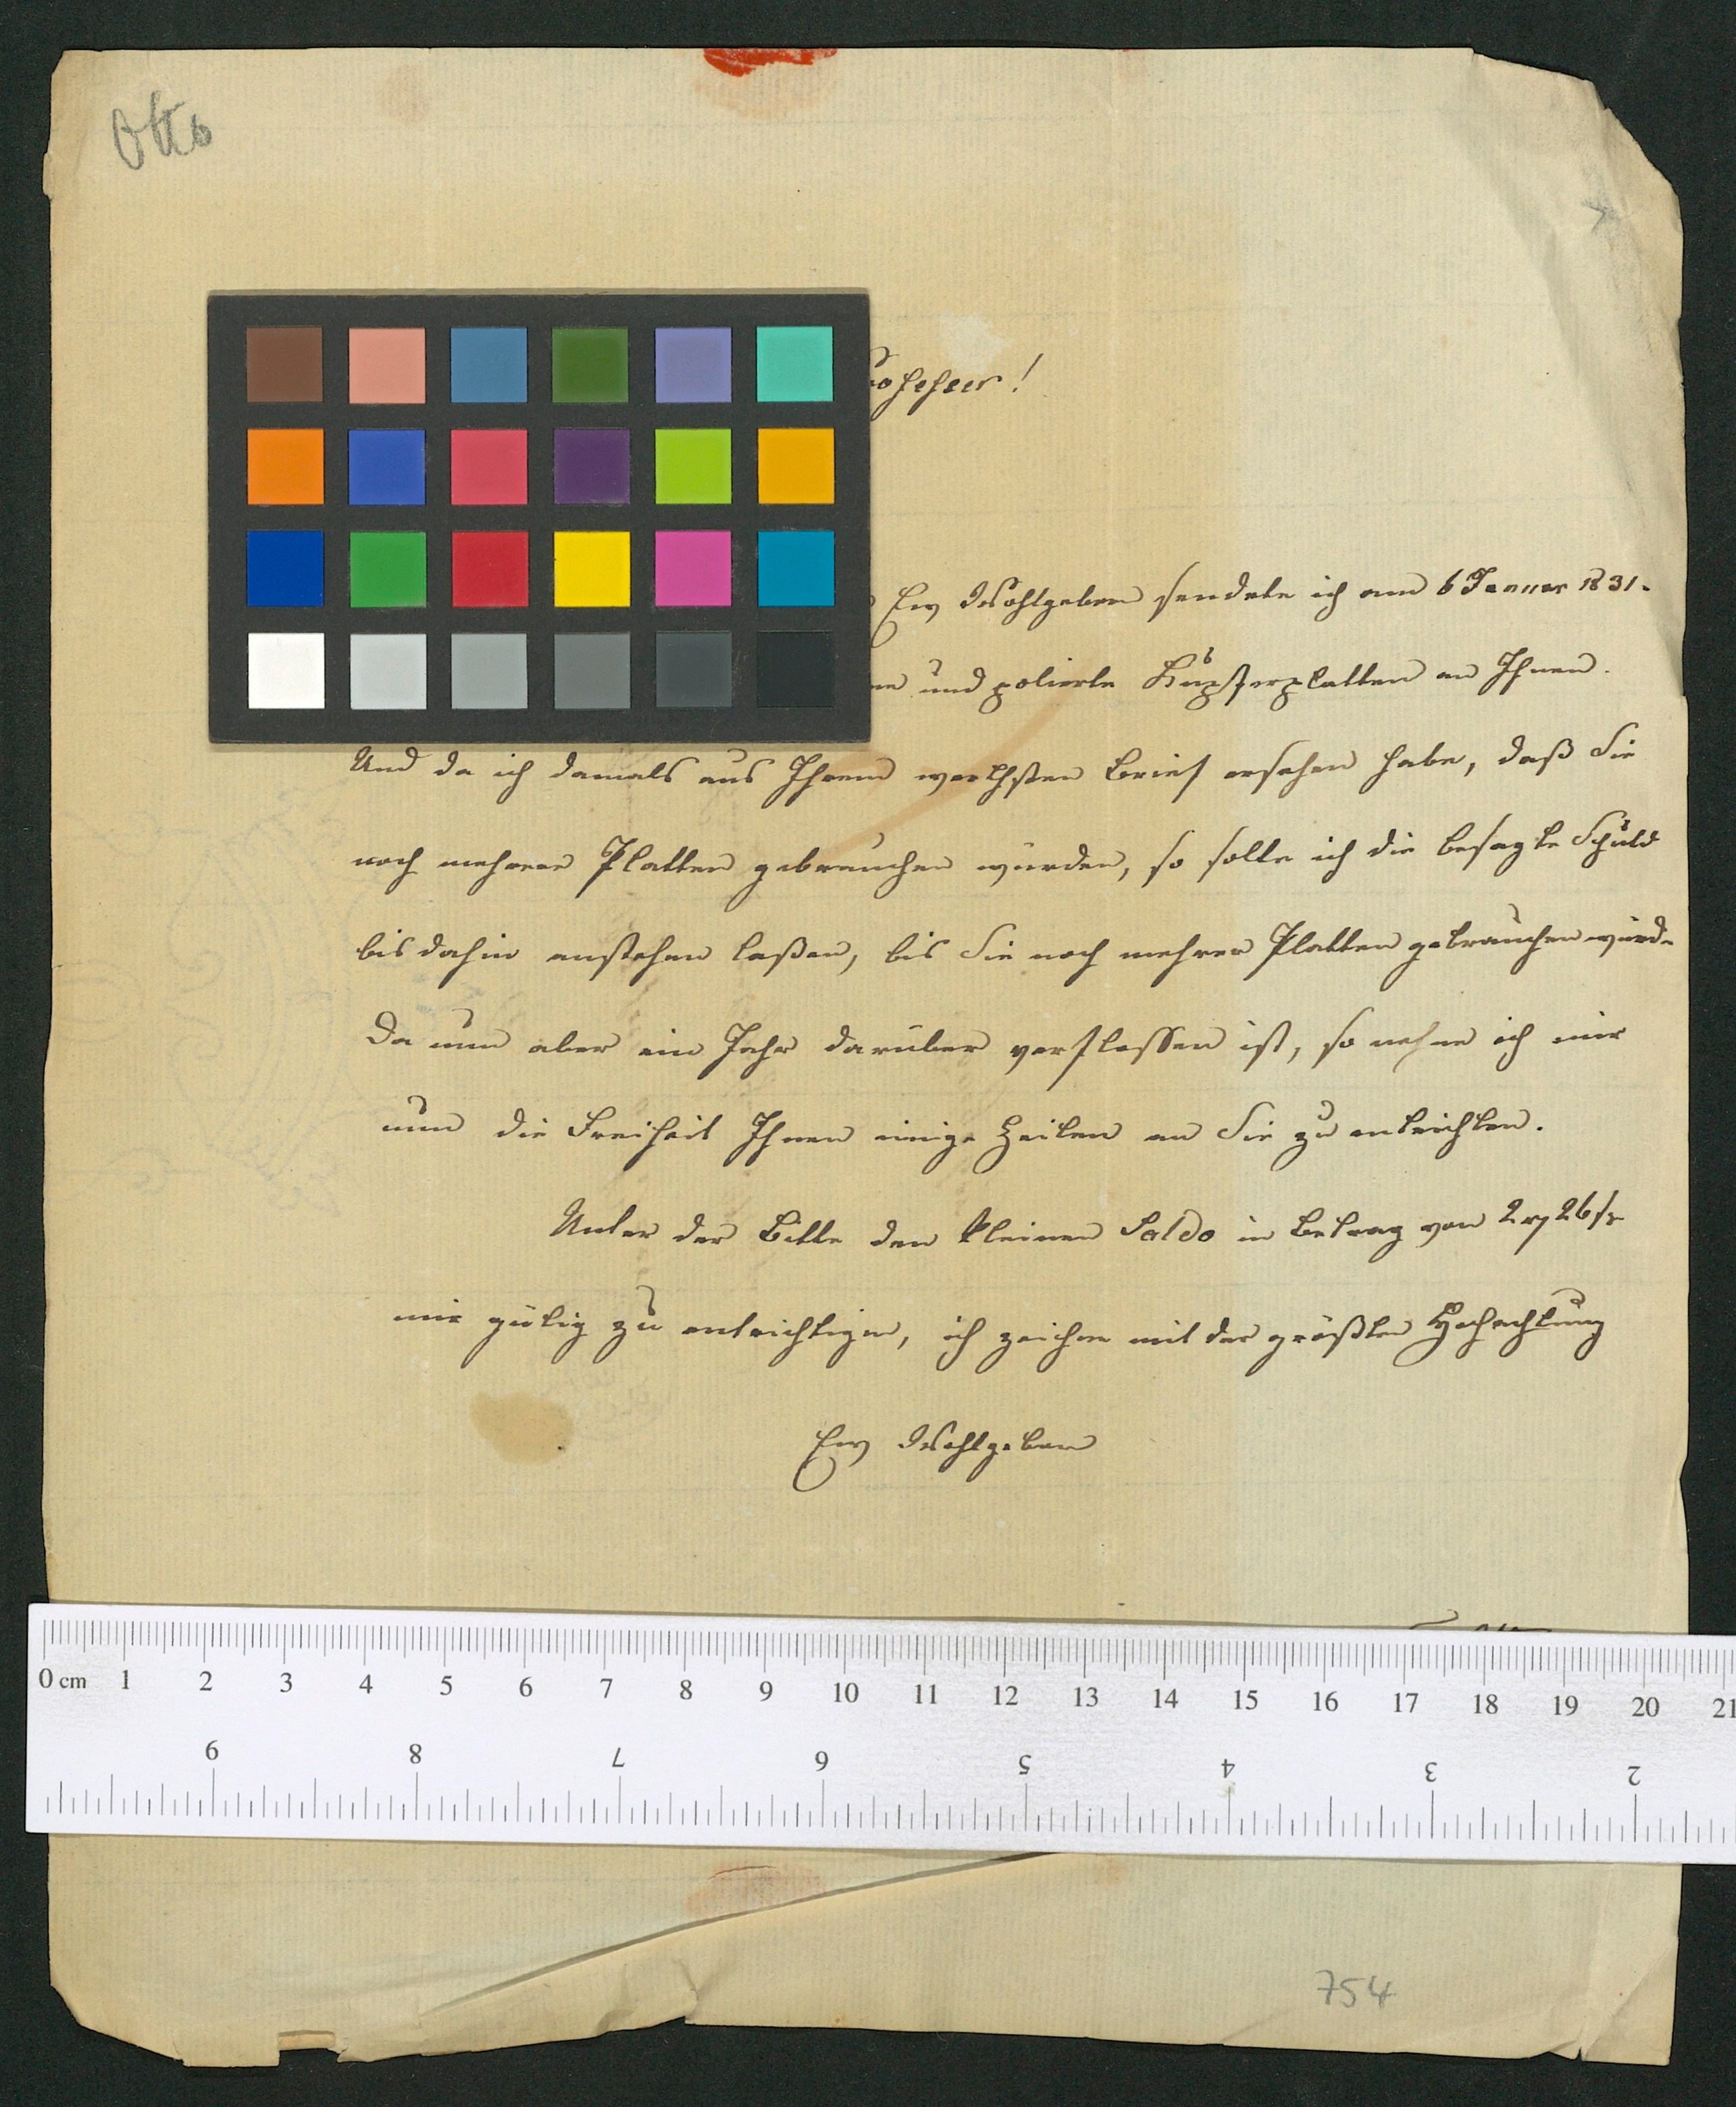 Otto
Ew Wohlgeben sendete ich am 6 Januar 1831.
und polierte Kupferplatten an Ihnen.
Und da ich damals aus Ihrem werthsten Brief ersehen habe, daß Sie
noch mehrere Platten gebrauchen würden, so solle ich die besagte Schuld
bis dahin anstehen laßen, bis Sie noch mehrer Platten gebrauchen würde
Da nun aber ein Jahr darüber verflossen ist, so nehme ich mir
nun die Freiheit Ihnen einige Zeilen an Sie zu entrichten.
Unter der Bitte den kleinen Saldo in Betrag von 2 26
mir gütig zu entrichtigen, ich zeichne mit der größten Hochachtung
Ew Wohlgeben
0 cm 1 2 3 4 5 6 7 8 9 10 11 12 13 14 15 16 17 18 19 20 21
9 8 7 6 5 4 3 2
754